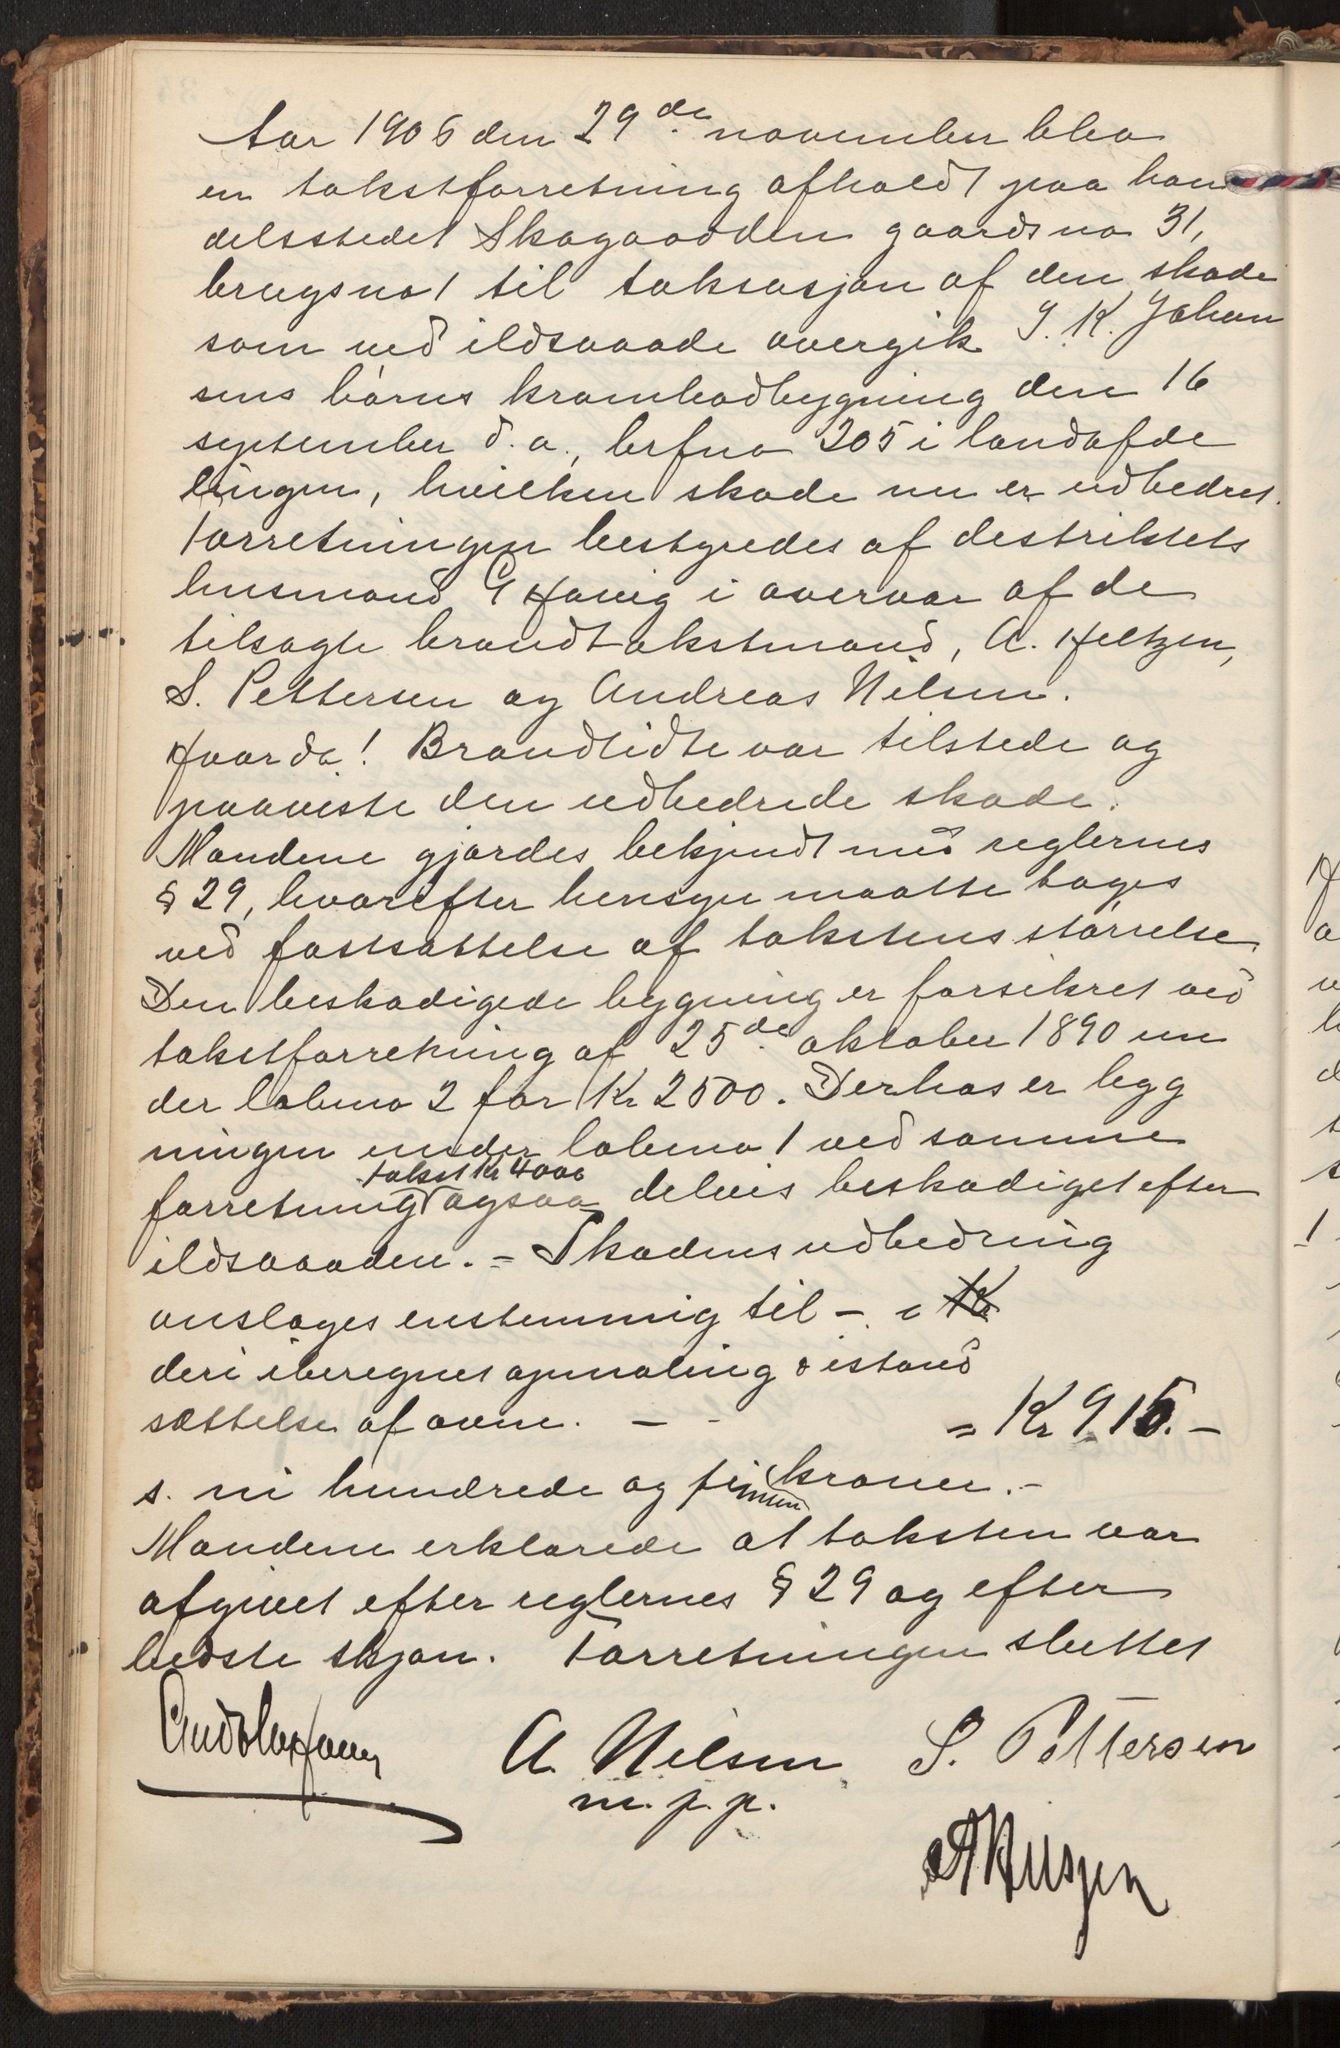 Aar 1906 den 29de november blev
en takstforretning afholdt paa han
delsstedet Skagaodden gaardsno 31,
brugsno 1 til taksasjon af den skade
som ved ildsvaade overgik J. K. Johan
sens børns krambodbygning den 16
september d.a., brfno 205 i landafde
lingen, hvilken skade nu er udbedret.
Forretningen bestyredes af destriktets
lensmand G Havig i overvær af de
tilsagte brandtakstmænd, A. Heltzen,
S. Pettersen og Andreas Nilsen.
Hvorda! Brandlidte var tilstede og
paaviste den udbedrede skade.
Mændene gjordes bekjendt med reglernes
§ 29, hvorefter hensyn maatte tages
ved fastsættelse af takstens størrelse
Den beskadigede bygning er forsikret ved
takstforretning af 25de oktober 1890 un
der labno 2 for Kr 2500. Derhos er byg
ningen under labno 1 ved samme
takst Kr 4000
forretning ogsaa delvis beskadiget efter
ildsvaaden. - Skadens udbedring
anslages enstemmig til -
deri iberegnet opmaling & istand
sættelse af ovne. - - = Kr 915. -
s. ni hundrede og femten kroner. -
Mændene erklærede at taksten var
afgivet efter reglernes § 29 og efter
bedste skjøn. Forretningen sluttet
A. Nilsen S. Pettersen
m.p.p.